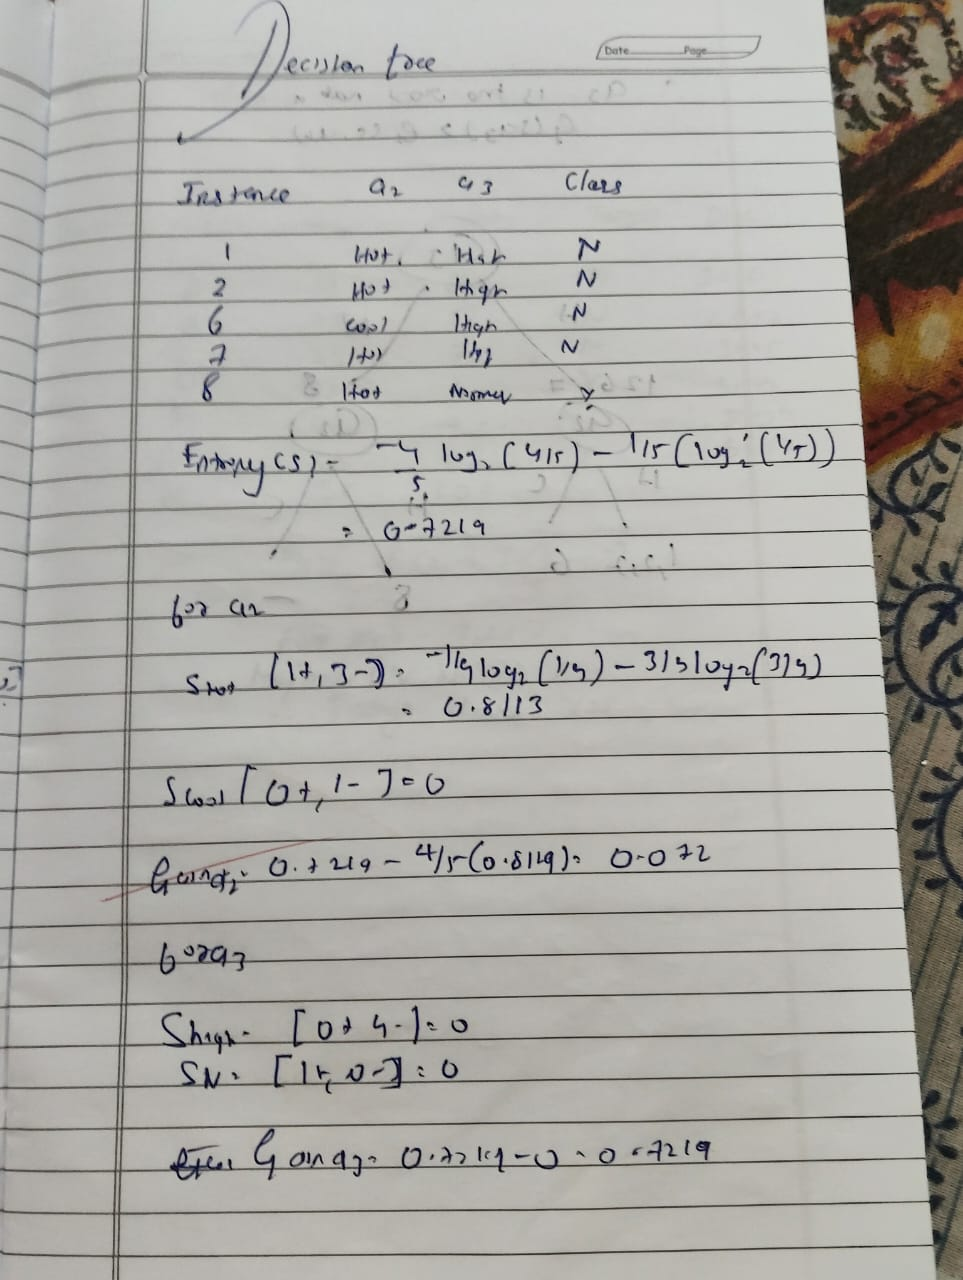 Decision tree
Date Page
Instance a2 a3 Class
1 Hot High N
2 Hot High N
6 cool High N
7 Hot High N
8 Hot Normal Y
Entropy(S) = -4/5 log2 (4/5) - 1/5 (log2 (1/5))
= 0.7219
for a2
SHot [1+, 3-] = -1/4 log2 (1/4) - 3/4 log2 (3/4)
= 0.8113
Scool [0+, 1-] = 0
Gain a2 = 0.7219 - 4/5 (0.8119) = 0.072
for a3
Shigh = [0+ 4-] = 0
SN = [1+, 0-] = 0
Gain a3 = 0.7219 - 0 = 0.7219